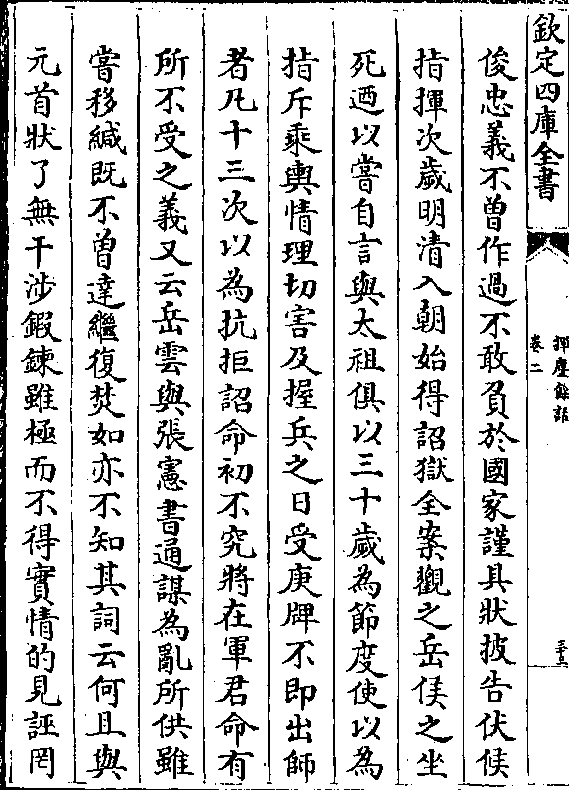 欽定四庫全書
揮麈餘話
卷二
三五
俊忠義不曽作過不敢負於國家謹具狀披告伏候
指揮次歲明清入朝始得詔獄全案觀之岳侯之坐
死廼以嘗自言與太祖俱以三十歲為節度使以為
指斥乘輿情理切害及握兵之日受庚牌不即出師
者凡十三次以為抗拒詔命初不究將在軍君命有
所不受之義又云岳雲與張憲書通謀為亂所供雖
嘗移緘既不曽達繼復焚如亦不知其詞云何且與
元首狀了無干涉鍜鍊雖極而不得實情的見誣罔